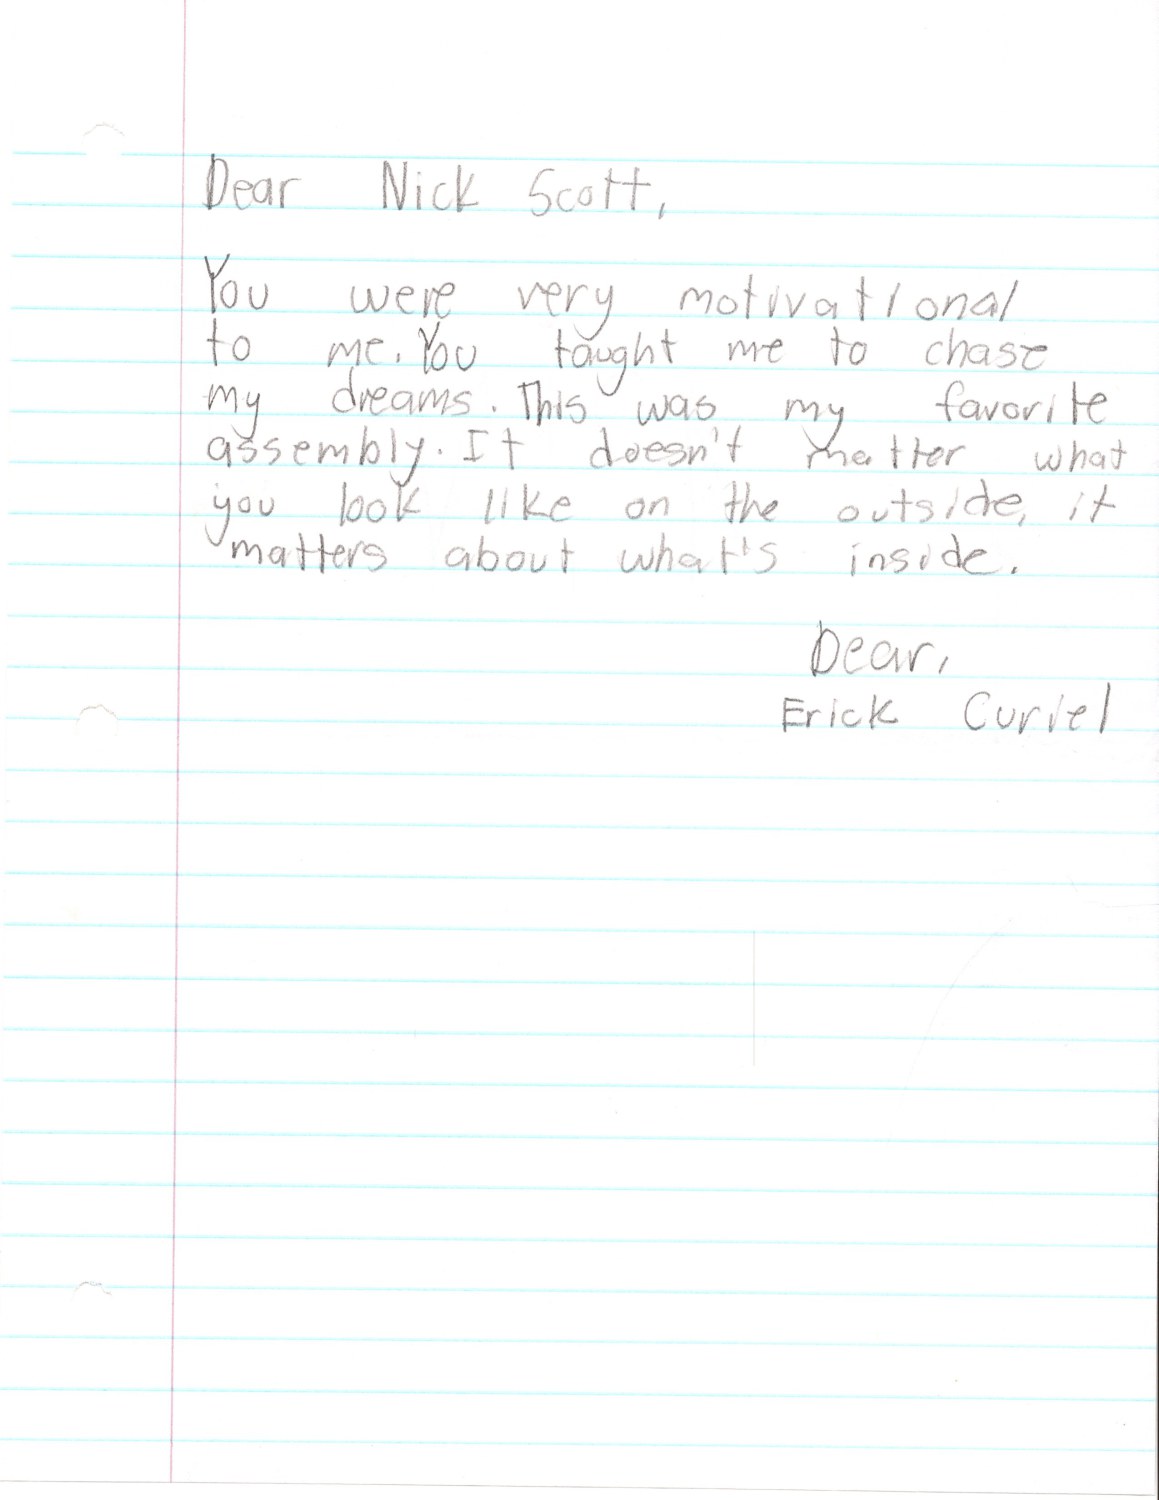 Dear Nick Scott,
You were very motivational
to me. You taught me to chase
my dreams. This was my favorite
assembly. It doesn't matter what
you look like on the outside, it
matters about what's inside.
Dear,
Erick Curiel